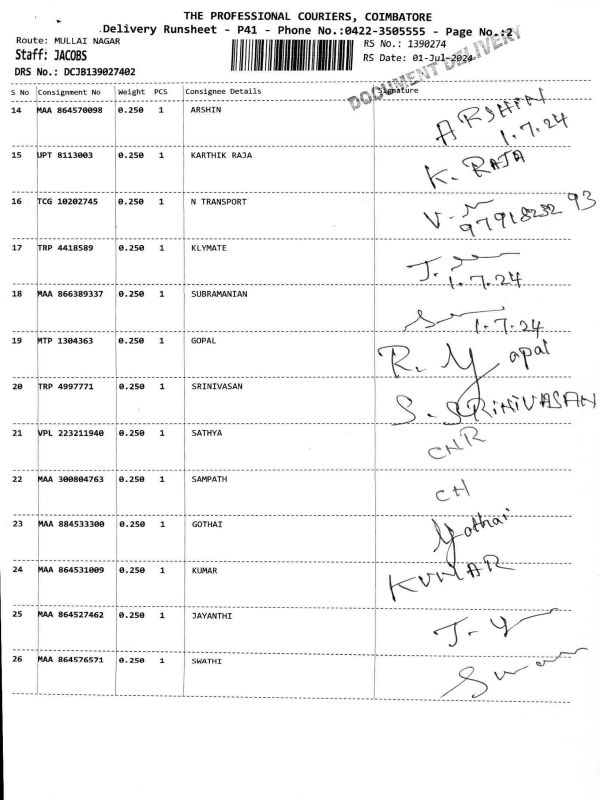 THE PROFESSIONAL COURIERS, COIMBATORE
Delivery Runsheet - P41 - Phone No.:0422-3505555 - Page No.:2
Route: MULLAI NAGAR
RS No.: 1390274
Staff: JACOBS
RS Date: 01-Jul-2024
DRS No.: DCJB139027402
DOCUMENT DELIVERY
S No Consignment No Weight PCS Consignee Details Signature
14 MAA 864570098 0.250 1 ARSHIN ARSHIN
1.7.24
15 UPT 8113003 0.250 1 KARTHIK RAJA K. RAJA
16 TCG 10202745 0.250 1 N TRANSPORT V.
17 TRP 4418589 0.250 1 KLYMATE J.
1.7.24
18 MAA 866389337 0.250 1 SUBRAMANIAN
1.7.24
19 MTP 1304363 0.250 1 GOPAL R. Gopal
20 TRP 4997771 0.250 1 SRINIVASAN S. SRINIVASAN
21 VPL 223211940 0.250 1 SATHYA CNR
22 MAA 300804763 0.250 1 SAMPATH CH
23 MAA 884533300 0.250 1 GOTHAI Gothai
24 MAA 864531009 0.250 1 KUMAR KUMAR
25 MAA 864527462 0.250 1 JAYANTHI J.
26 MAA 864576571 0.250 1 SWATHI